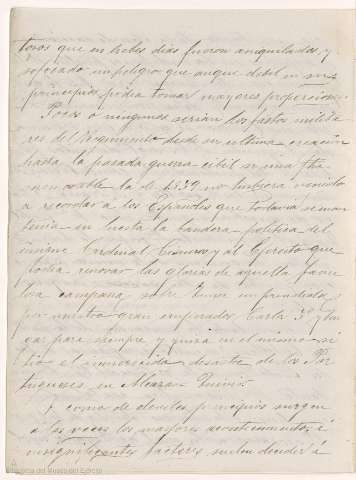 toros que en breves dias fueron aniquilados, y
sofocado un peligro que aunque debil en sus
principios, podia tomar mayores proporciones.
Pocos o ningunos serian los fastos milita
res del Regimiento desde su ultima creacion
hasta la pasada guerra civil si una fecha
memorable la de 1839 no hubiera venido
a recordar a los Españoles que todavia se man
tenia en la bandera politica del
insigne Cardenal Cisneros y al Ejercito que
podia renovar las glorias de aquella famo
sa campaña sobre Tunez emprendida
por nuestro gran emperador Carlos 1º y
gar para siempre y quiza en el mismo si
tio el inmerecido desastre de los Por
tugueses, en Alcazar Quivir.
Y como de debiles principios surgen
a las veces los mayores acontecimientos, é
insignificantes factores, suelen decidir á
Biblioteca del Museo del Ejército